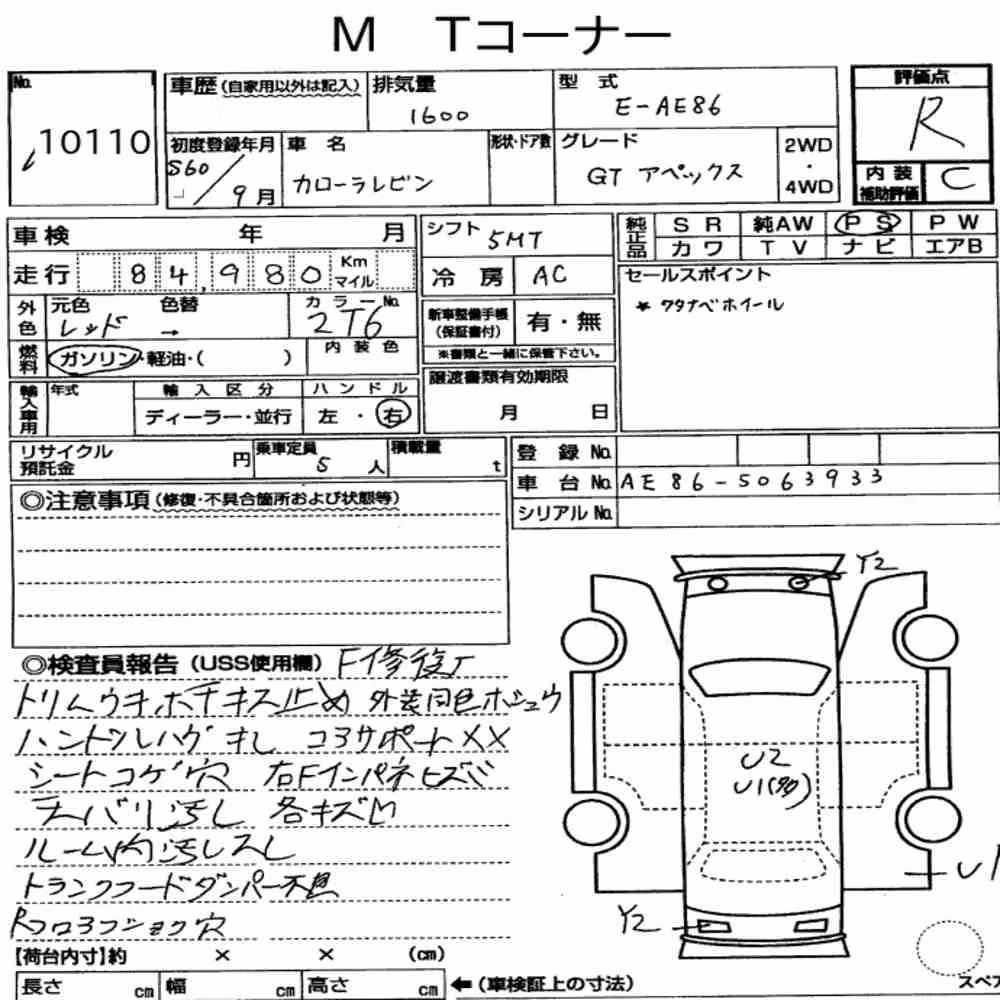 M Tコーナー
No. 10110
車歴(自家用以外は記入)
排気量 1600
型式 E-AE86
評価点 R
初度登録年月 S60/9月
車名 カローラレビン
形状・ドア数
グレード GT アペックス
2WD・4WD
内装補助評価 C
車検 年 月
走行 84,980 Km マイル
外色 元色 レッド 色替 → カラーNo. 2T6
燃料 ガソリン・軽油・( ) 内装色
輸入車用 年式 輸入区分 ディーラー・並行 ハンドル 左・右
シフト 5MT
冷房 AC
新車整備手帳(保証書付) 有・無
※書類と一緒に保管下さい。
譲渡書類有効期限 月 日
純正品 SR 純AW PS PW
カワ TV ナビ エアB
セールスポイント
* ワタナベホイール
リサイクル預託金 円 乗車定員 5人 積載量 t
登録No.
車台No. AE86-5063933
シリアルNo.
◎注意事項(修復・不具合箇所および状態等)
◎検査員報告(USS使用欄) F修復
トリムウキホチキス止め 外装同色ホシュウ
ハンドルハゲキレ コアサポートXX
シートコゲ穴 右Fインパネヒズミ
天バリ汚れ 各キズ凹
ルーム内汚レスレ
トランクフードダンパー不良
Rフロアプッシュ穴
Y2
U2
U1(多)
U1
Y2
【荷台内寸】約 × × (cm)
長さ cm 幅 cm 高さ cm ←(車検証上の寸法)
スペア